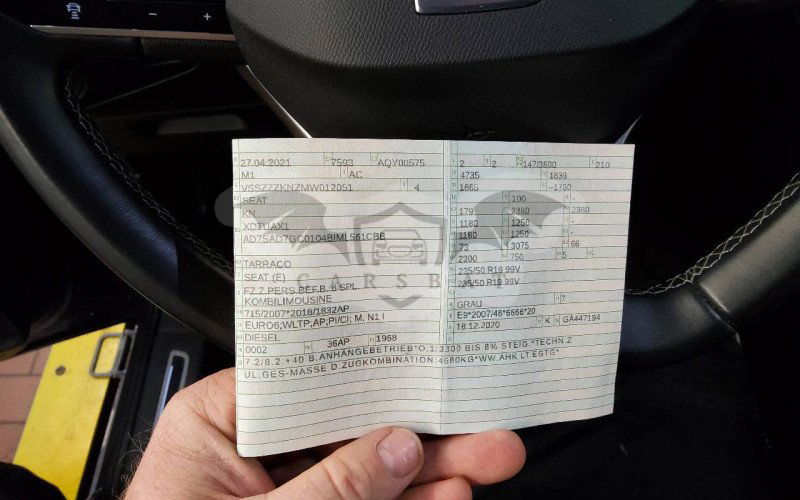 27.04.2021 7593 AQY00575
M1 AC
VSSZZZKNZMW012051 4
SEAT
KN
XDTUAX1
AD7SAD7GC0104BIML561CBE
TARRACO
SEAT (E)
FZ.Z.PERS.BEF.B. 8 SPL
KOMBILIMOUSINE
715/2007*2018/1832AP
EURO6;WLTP,AP;PI/CI; M, N1 I
DIESEL
0002 36AP 1968
2 2 147/3500 210
4735 1839
- 100 -
179 2380 2380
1180 1250 -
1180 1250 -
73 3075 66
2300 750 5 -
235/50 R19 99V
235/50 R19 99V
-
GRAU 7
E9*2007/46*6666*20
18.12.2020 K GA447194
7.2/8.2:+40 B.ANHÄNGEBETRIEB*O.1:2300 BIS 8% STEIG.*TECHN Z
UL.GES-MASSE D.ZUGKOMBINATION:4680KG*WW.AHK LT.EGTG*
CARSBAT